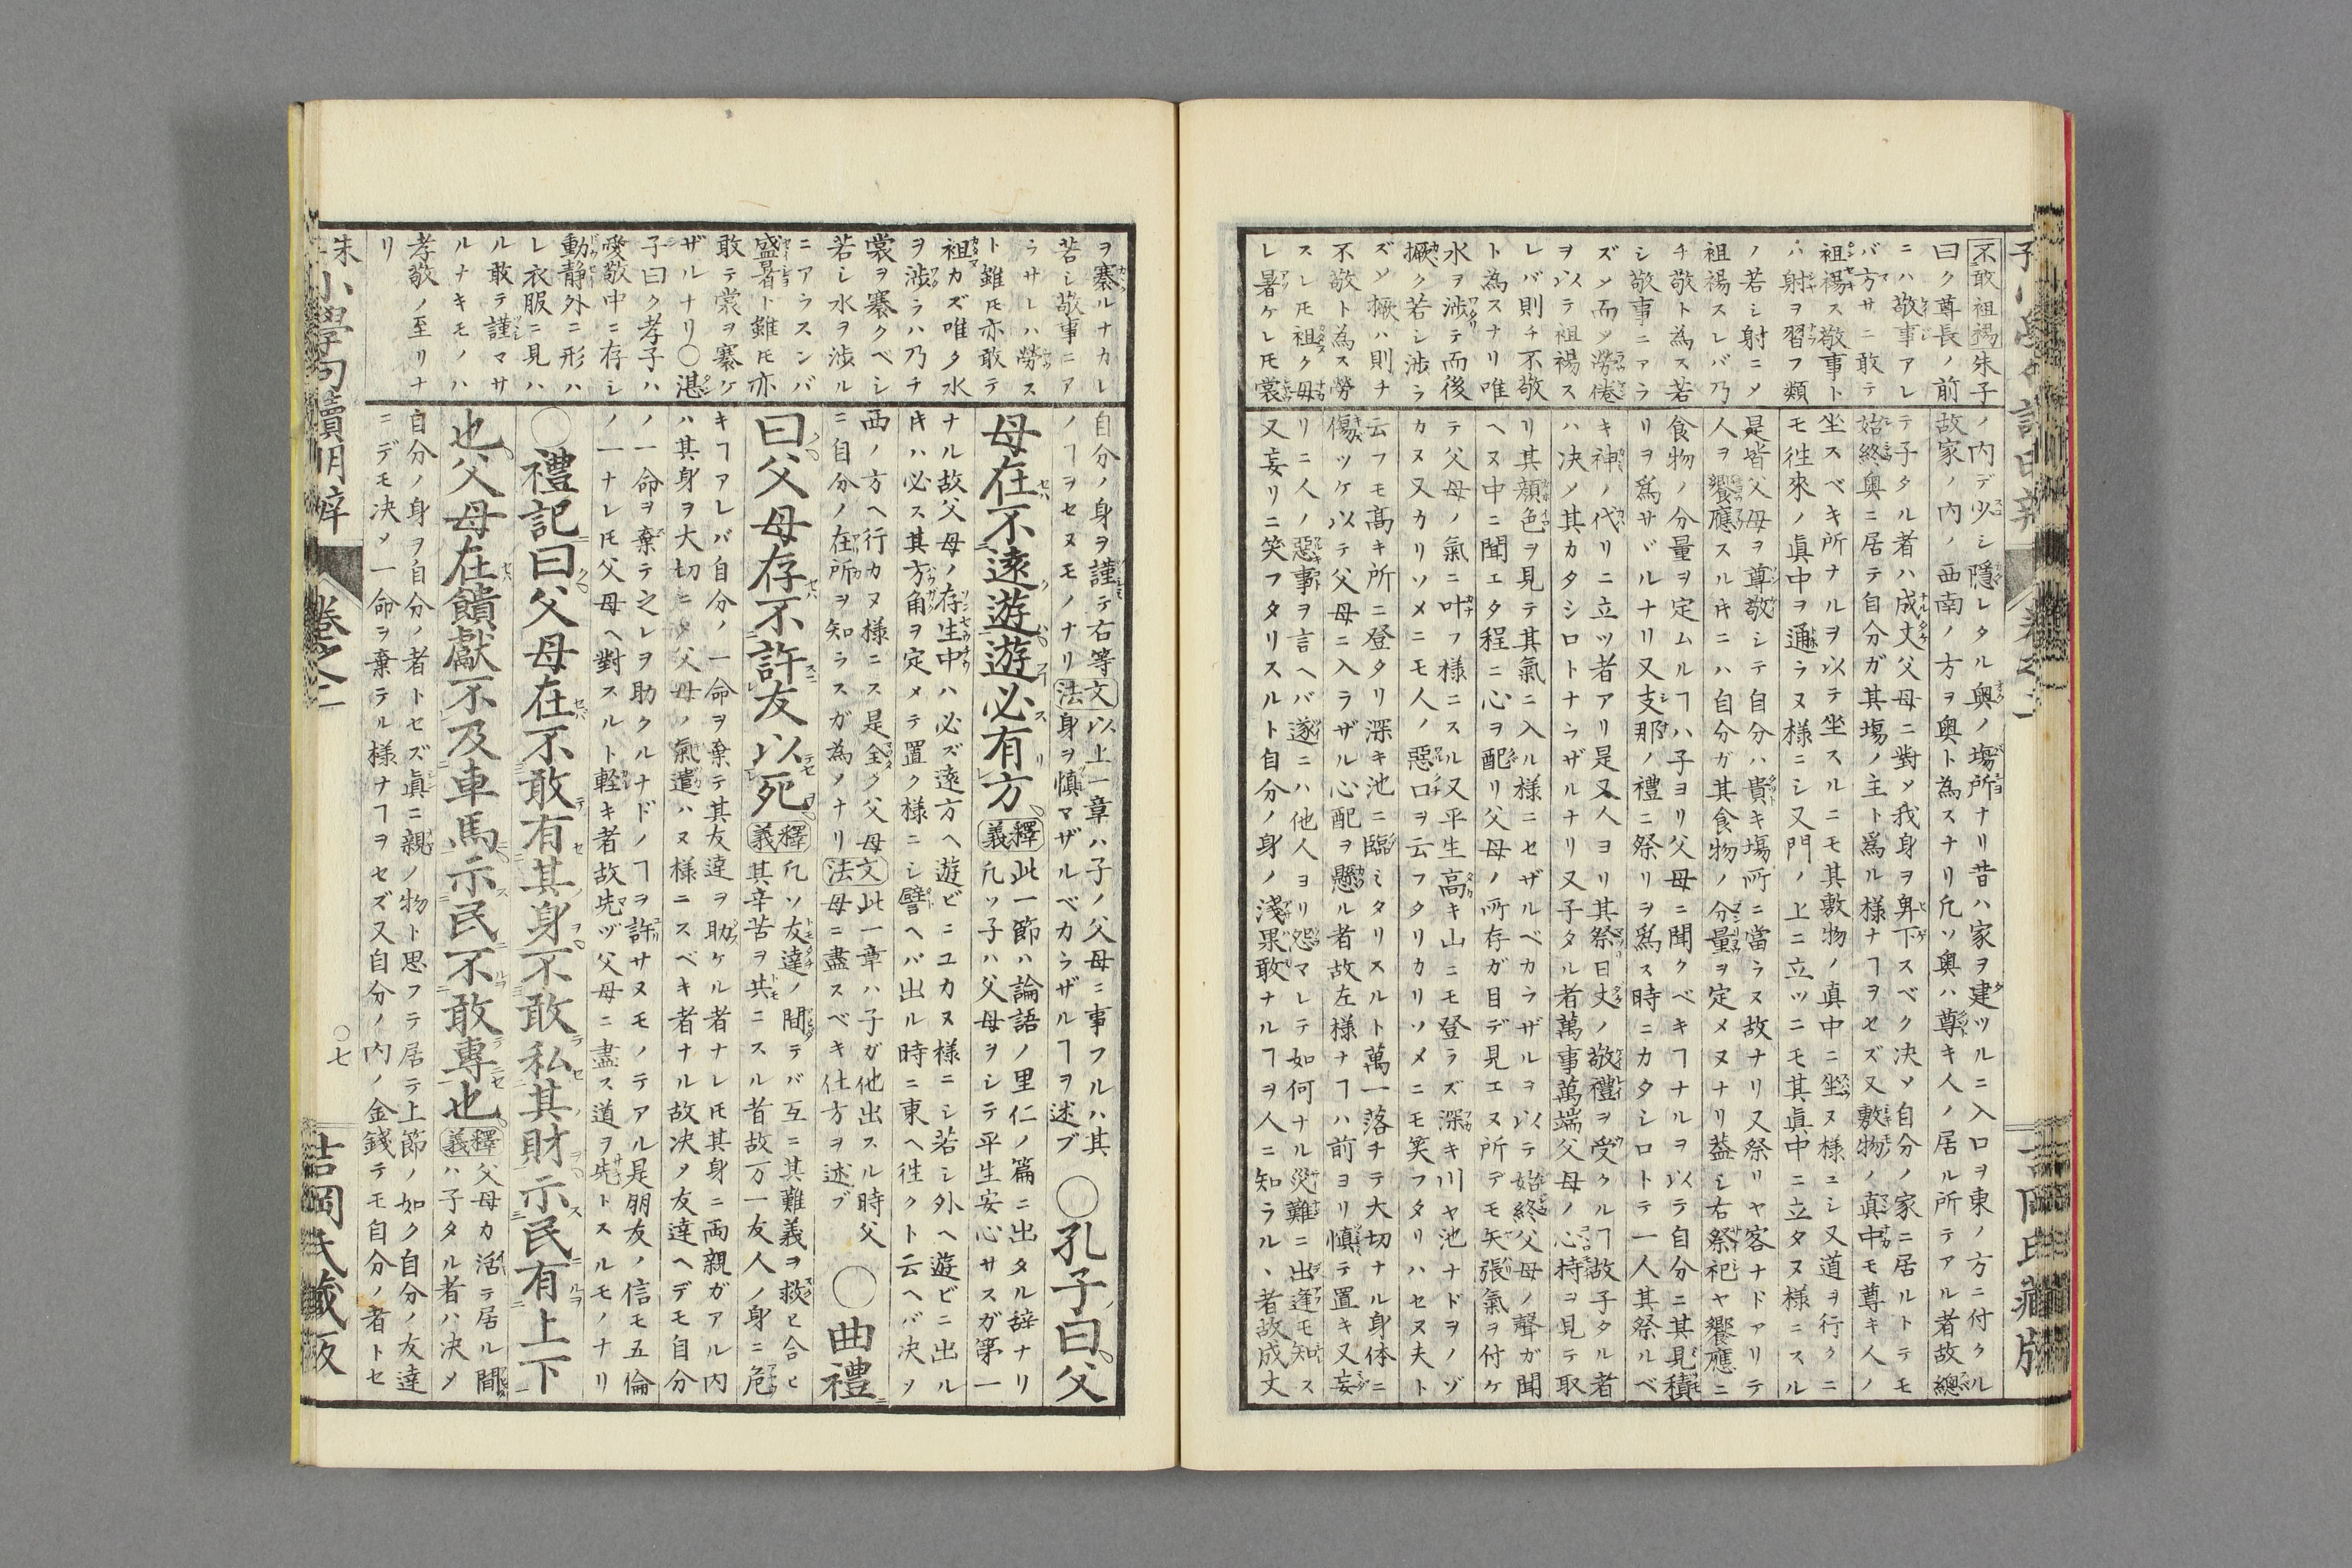 不敢袒裼朱子
曰ク尊長ノ前
ニハ敬事アレ
バ方サニ敢テ
袒裼ス敬事ト
ハ射ヲ習フ類
ノ若シ射ニメ
袒裼スレバ乃
チ敬ト為ス若
シ敬事ニアラ
ズメ而メ勞倦
ヲ以テ袒裼ス
レバ則チ不敬
ト為スナリ唯
水ヲ渉テ而後
撅ク若シ渉ラ
ズメ撅ハ則チ
不敬ト為ス勞
スレ𪜈袒ク毋
レ暑ケレ𪜈裳
ノ内デ少シ隱レタル奥ノ塲所ナリ昔ハ家ヲ建ツルニ入口ヲ東ノ方ニ付クル
故家ノ内ノ西南ノ方ヲ奥ト為スナリ凢ソ奥ハ尊キ人ノ居ル所テアル者故總
テ子タル者ハ成丈父母ニ對メ我身ヲ卑下スベク决メ自分ノ家ニ居ルトテモ
始終奥ニ居テ自分ガ其塲ノ主ト爲ル様ナヿヲセズ又敷物ノ真中モ尊キ人ノ
坐スベキ所ナルヲ以テ坐スルニモ其敷物ノ真中ニ坐ヌ様ニシ又道ヲ行クニ
モ徃來ノ真中ヲ通ラヌ様ニシ又門ノ上ニ立ツニモ其真中ニ立タヌ様ニスル
是皆父母ヲ尊敬シテ自分ハ貴キ塲所ニ當ラヌ故ナリ又祭リヤ客ナドアリテ
人ヲ饗應スル𪜈ニハ自分ガ其食物ノ分量ヲ定メヌナリ葢シ右祭祀ヤ饗應ニ
食物ノ分量ヲ定ムルヿハ子ヨリ父母ニ聞クベキヿナルヲ以テ自分ニ其見積
リヲ爲サヾルナリ又支那ノ禮ニ祭リヲ爲ス時ニカタシロトテ一人其祭ルベ
キ神ノ代リニ立ツ者アリ是又人ヨリ其祭日丈ノ敬禮ヲ受クルヿ故子タル者
ハ决メ其カタシロトナラザルナリ又子タル者萬事萬端父母ノ心持ヲ見テ取
リ其顔色ヲ見テ其氣ニ入ル様ニセザルベカラザルヲ以テ始終父母ノ聲ガ聞
ヘヌ中ニ聞エタ程ニ心ヲ配リ父母ノ所存ガ目デ見エヌ所デモ矢張氣ヲ付ケ
テ父母ノ氣ニ叶フ様ニスル又平生高キ山ニモ登ラズ深キ川ヤ池ナドヲノゾ
カヌ又カリソメニモ人ノ惡口ヲ云フタリカリソメニモ笑フタリハセヌ夫ト
云フモ高キ所ニ登タリ深キ池ニ臨ミタリスルト萬一落チテ大切ナル身体ニ
傷ツケ以テ父母ニ入ラザル心配ヲ懸ル者故左様ナヿハ前ヨリ慎テ置キ又妄
リニ人ノ惡事ヲ言ヘバ遂ニハ他人ヨリ怨マレテ如何ナル災難ニ出逢モ知ス
又妄リニ笑フタリスルト自分ノ身ノ淺果敢ナルヿヲ人ニ知ラル、者故成丈
ヲ褰ルナカレ
若シ敬事ニア
ラサレハ勞ス
ト雖𪜈亦敢テ
袒カズ唯タ水
ヲ渉ラハ乃チ
裳ヲ褰クベシ
若シ水ヲ渉ル
ニアラスンバ
盛暑ト雖𪜈亦
敢テ裳ヲ褰ケ
ザルナリ〇湛
子曰ク孝子ハ
愛敬中ニ存シ
動静外ニ形ハ
レ衣服ニ見ハ
ル敢テ謹マサ
ルナキモノハ
孝敬ノ至リナ
リ
自分ノ身ヲ謹テ右等
ノヿヲセヌモノナリ
文法 以上一章ハ子ノ父母ニ事フルハ其
身ヲ慎マザルベカラザルヿヲ述ブ
〇孔子曰父
母在不遠遊遊必有方
釋義 此一節ハ論語ノ里仁ノ篇ニ出タル辞ナリ
凢ソ子ハ父母ヲシテ平生安心サスガ第一
ナル故父母ノ存生中ハ必ズ遠方ヘ遊ビニユカヌ様ニシ若シ外ヘ遊ビニ出ル
𪜈ハ必ス其方角ヲ定メテ置ク様ニシ譬ヘバ出ル時ニ東ヘ徃クト云ヘバ决メ
西ノ方ヘ行カヌ様ニス是全ク父母
ニ自分ノ在所ヲ知ラスガ為メナリ
文法 此一章ハ子ガ他出スル時父
母ニ盡スベキ仕方ヲ述ブ
〇曲禮
曰父母存不許友以死
釋義 凢ソ友達ノ間テバ互ニ其難義ヲ救ヒ合ヒ
其辛苦ヲ共ニスル者故万一友人ノ身ニ危
キヿアレバ自分ノ一命ヲ棄テ其友達ヲ助ケル者ナレ𪜈其身ニ両親ガアル内
ハ其身ヲ大切ニメ父母ノ氣遣ハヌ様ニスベキ者ナル故决メ友達ヘデモ自分
ノ一命ヲ棄テ之レヲ助クルナドノヿヲ許サヌモノテアル是朋友ノ信モ五倫
ノ一ナレ𪜈父母ヘ對スルト軽キ者故先ヅ父母ニ盡ス道ヲ先トスルモノナリ
〇禮記曰父母在不敢有其身不敢私其財示民有上下
也父母在饋獻不及車馬示民不敢專也
釋義 父母カ活テ居ル間
ハ子タル者ハ决メ
自分ノ身ヲ自分ノ者トセズ眞ニ親ノ物ト思フテ居テ上節ノ如ク自分ノ友達
ニデモ决メ一命ヲ棄テル様ナヿヲセズ又自分ノ内ノ金錢テモ自分ノ者トセ
小學句讀明辨 卷之二 〇七 吉岡氏藏版